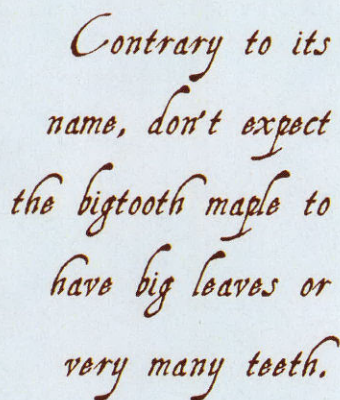 Contrary to its
name, don't expect
the bigtooth maple to
have big leaves or
very many teeth.